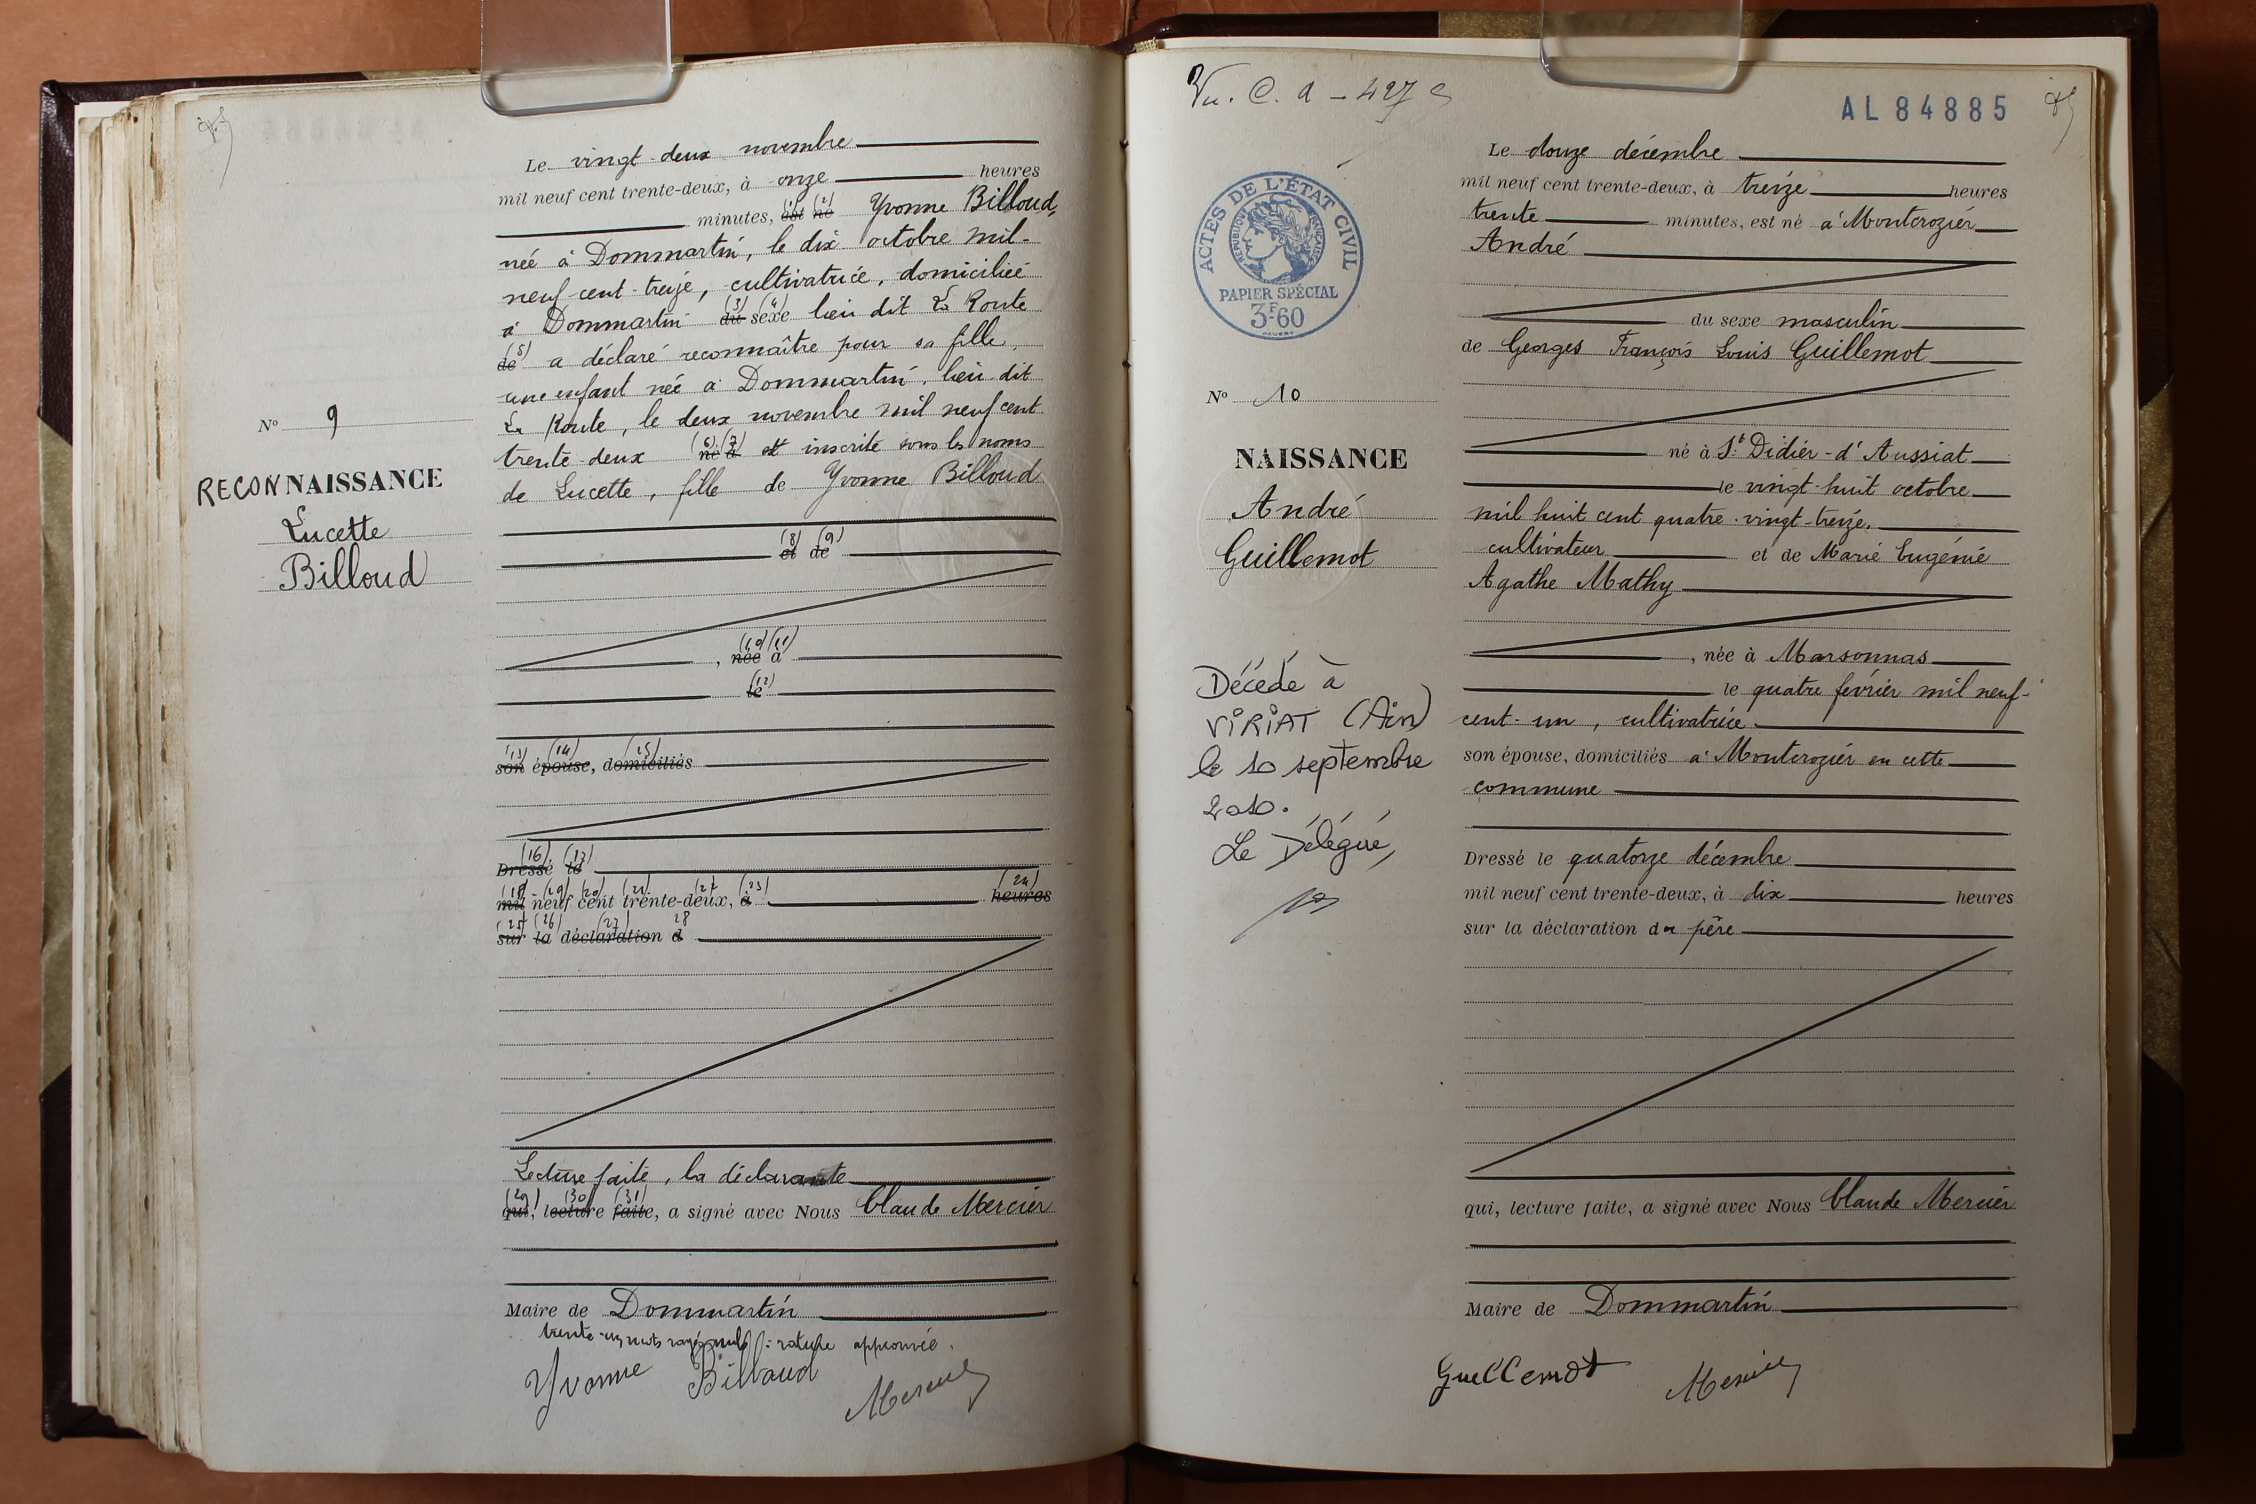 Le vingt-deux novembre
mil neuf cent trente-deux, à onze heures
minutes, (1) est (2) né Yvonne Billoud,
née à Dommartin, le dix octobre mil-
neuf-cent-treize, cultivatrice, domiciliée
à Dommartin (3) du (4) sexe lieu dit La Route
(5) de a déclaré reconnaître pour sa fille,
une enfant née à Dommartin, lieu-dit
La Route, le deux novembre mil neuf cent
trente-deux (6) né (7) à et inscrite sous les noms
de Lucette, fille de Yvonne Billoud
(8) et (9) de
, (10) née (11) à
(12) le
(13) son (14) épouse, (15) domiciliés
(16) Dressé (17) le
(18) mil (19) neuf (20) cent (21) trente-(22) deux, (23) à (24) heures
(25) sur (26) la (27) déclaration 28 d
Lecture faite, la déclarante
(29) qui, (30) lecture (31) faite, a signé avec Nous Claude Mercier
Maire de Dommartin
trente-un mots rayés nuls : rature approuvée.
Yvonne Billoud
Mercier
No 9
RECONNAISSANCE
Lucette
Billoud
Vu. C. a - 427
AL 84885
ACTES DE L'ÉTAT CIVIL
RÉPUBLIQUE FRANÇAISE
PAPIER SPÉCIAL
3F60
No 10
NAISSANCE
André
Guillemot
Décédé à
VIRIAT (Ain)
le 10 septembre
2010.
Le Délégué,
Le douze décembre
mil neuf cent trente-deux, à treize heures
trente minutes, est né à Montcrozier
André
du sexe masculin
de Georges François Louis Guillemot
né à St Didier-d'Aussiat
le vingt-huit octobre
mil huit cent quatre-vingt-treize,
cultivateur et de Marie Eugénie
Agathe Mathy
, née à Marsonnas
le quatre février mil neuf-
cent-un, cultivatrice
son épouse, domiciliés à Montcrozier en cette
commune
Dressé le quatorze décembre
mil neuf cent trente-deux, à dix heures
sur la déclaration du père
qui, lecture faite, a signé avec Nous Claude Mercier
Maire de Dommartin
Guillemot
Mercier